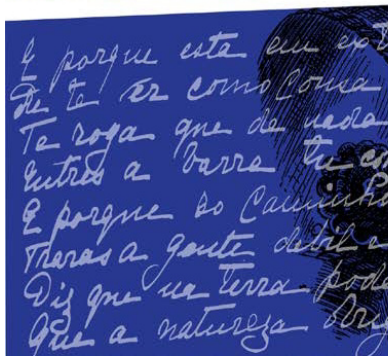 E porque está em ext
De te ver como cousa
Te roga que de nada
Entres a barra tu co
E porque do Caminho
Trarás a gente débil e
Diz que na terra pode
Que a natureza